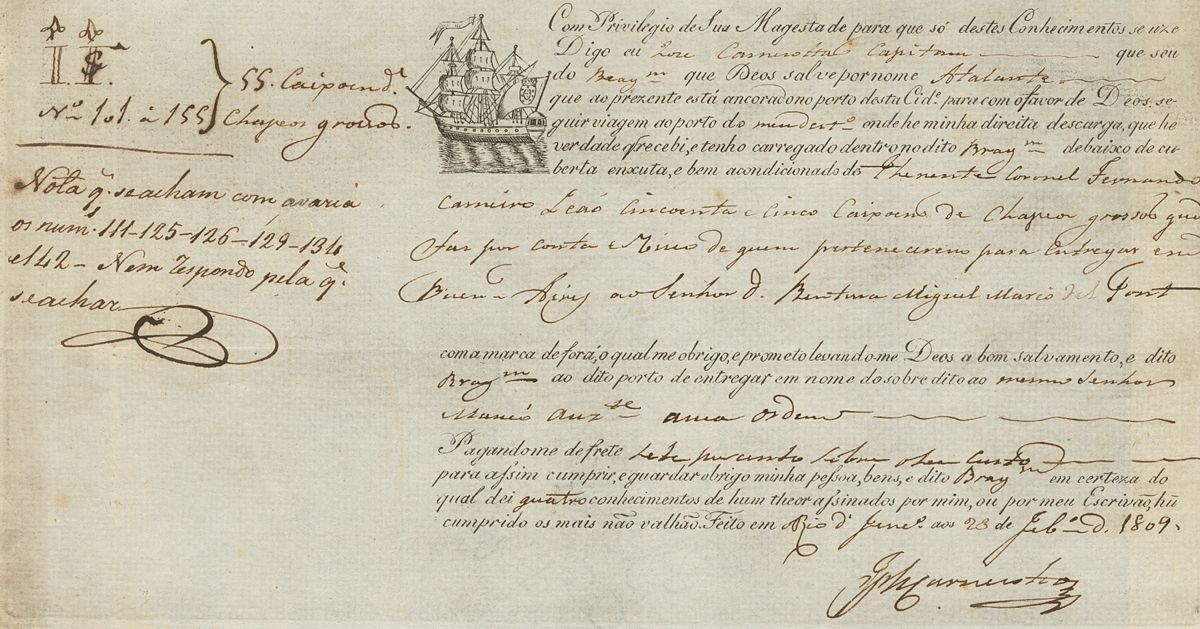 55. Caixoens d.
Nº 101. á 155 Chapeos grossos.
Nota q. se acham com avaria
os num.s 111-125-126-129-134
e 142 - Nem respondo pela q.e
se achar
Com Privilegio de Sua Magestade para que só destes Conhecimentos se uze
Digo eu Capitam que sou
do Brag.m que Deos salve por nome Atalante
que ao prezente está ancorado no porto desta Cid.e para com o favor de Deos, se-
guir viagem ao porto do meu dest.o onde he minha direita descarga, que hé
verdade q recebi, e tenho carregado dentro no dito Brag.m debaixo de cu-
berta enxuta, e bem acondicionado do Thenente Coronel Fernando
Carneiro Leaó Cincoenta e Cinco Caixoens de Chapeos grossos que
faz por conta e Risco de quem pertencer para Entregar em
Buen.s Aires ao Senhor d. Bentura Miguel Marcó del Pont
com a marca de fora, o qual me obrigo, e prometo levandome Deos a bom salvamento, e dito
Brag.m ao dito porto de entregar em nome do sobre dito ao mesmo Senhor
Marcó auz.te a sua Ordem
Pagandome de frete Sete por cento Sobre o seu Custo
para assim cumprir, e guardar obrigo minha pessoa, bens, e dito Brag.m em certeza do
qual dei quatro conhecimentos de hum theor assinados por mim, ou por meu Escrivão, hũ
cumprido os mais não valhão. Feito em Rio d. Jenr.o aos 23 de Feb.o d. 1809.